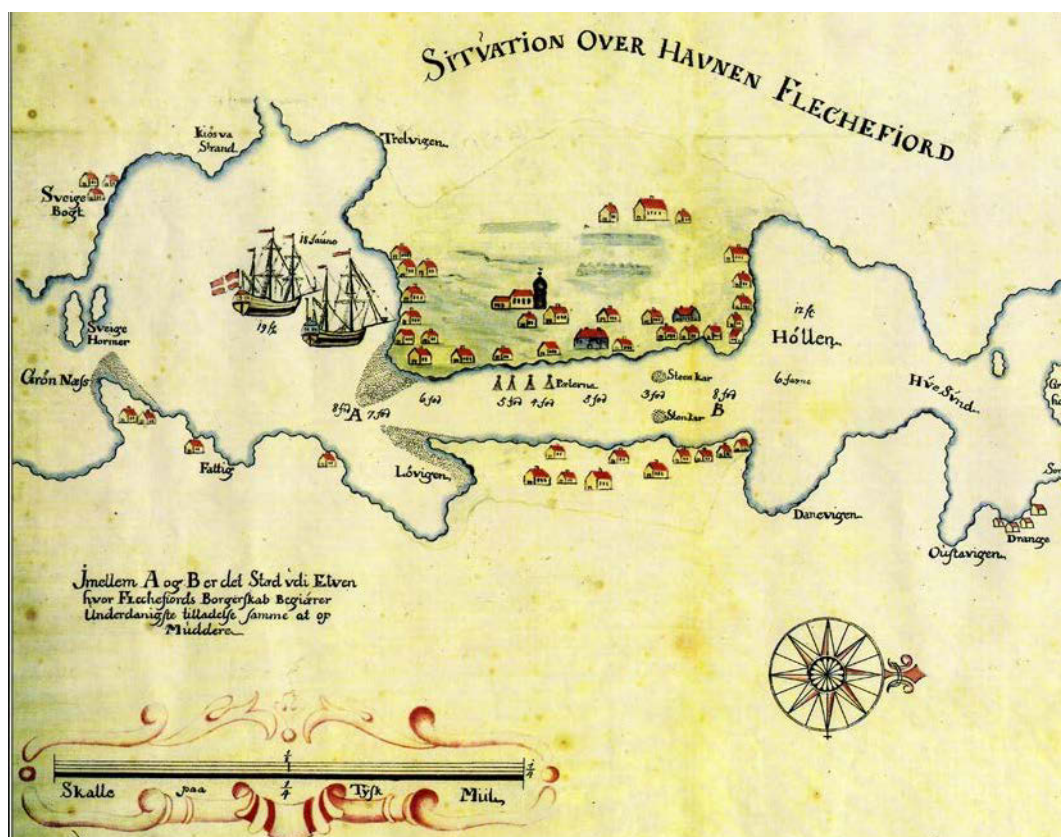 SITVATION OVER HAVNEN FLECHEFIORD
Kiósva
Strand
Trelvigen
Sveige
Bogt
18 faune
19 ft
Sveige
Hormer
Grón Næss
Fattig
Lóvigen
8 fod
A
7 fod
6 fod
5 fod
4 fod
Pælerne
5 fod
3 fod
8 fod
Steen kar
Stenkar
B
12 ft
Hóllen
6 faune
Húe Súnd
Danevigen
Oústavigen
Drange
Jmellem A og B er det Stæd vdi Elven
hvor Flechefiords Borgerskab Begiærer
Underdanigste tilladelse samme at op
Múddere
1/4
1/4
Skalle paa Tÿsk Miil